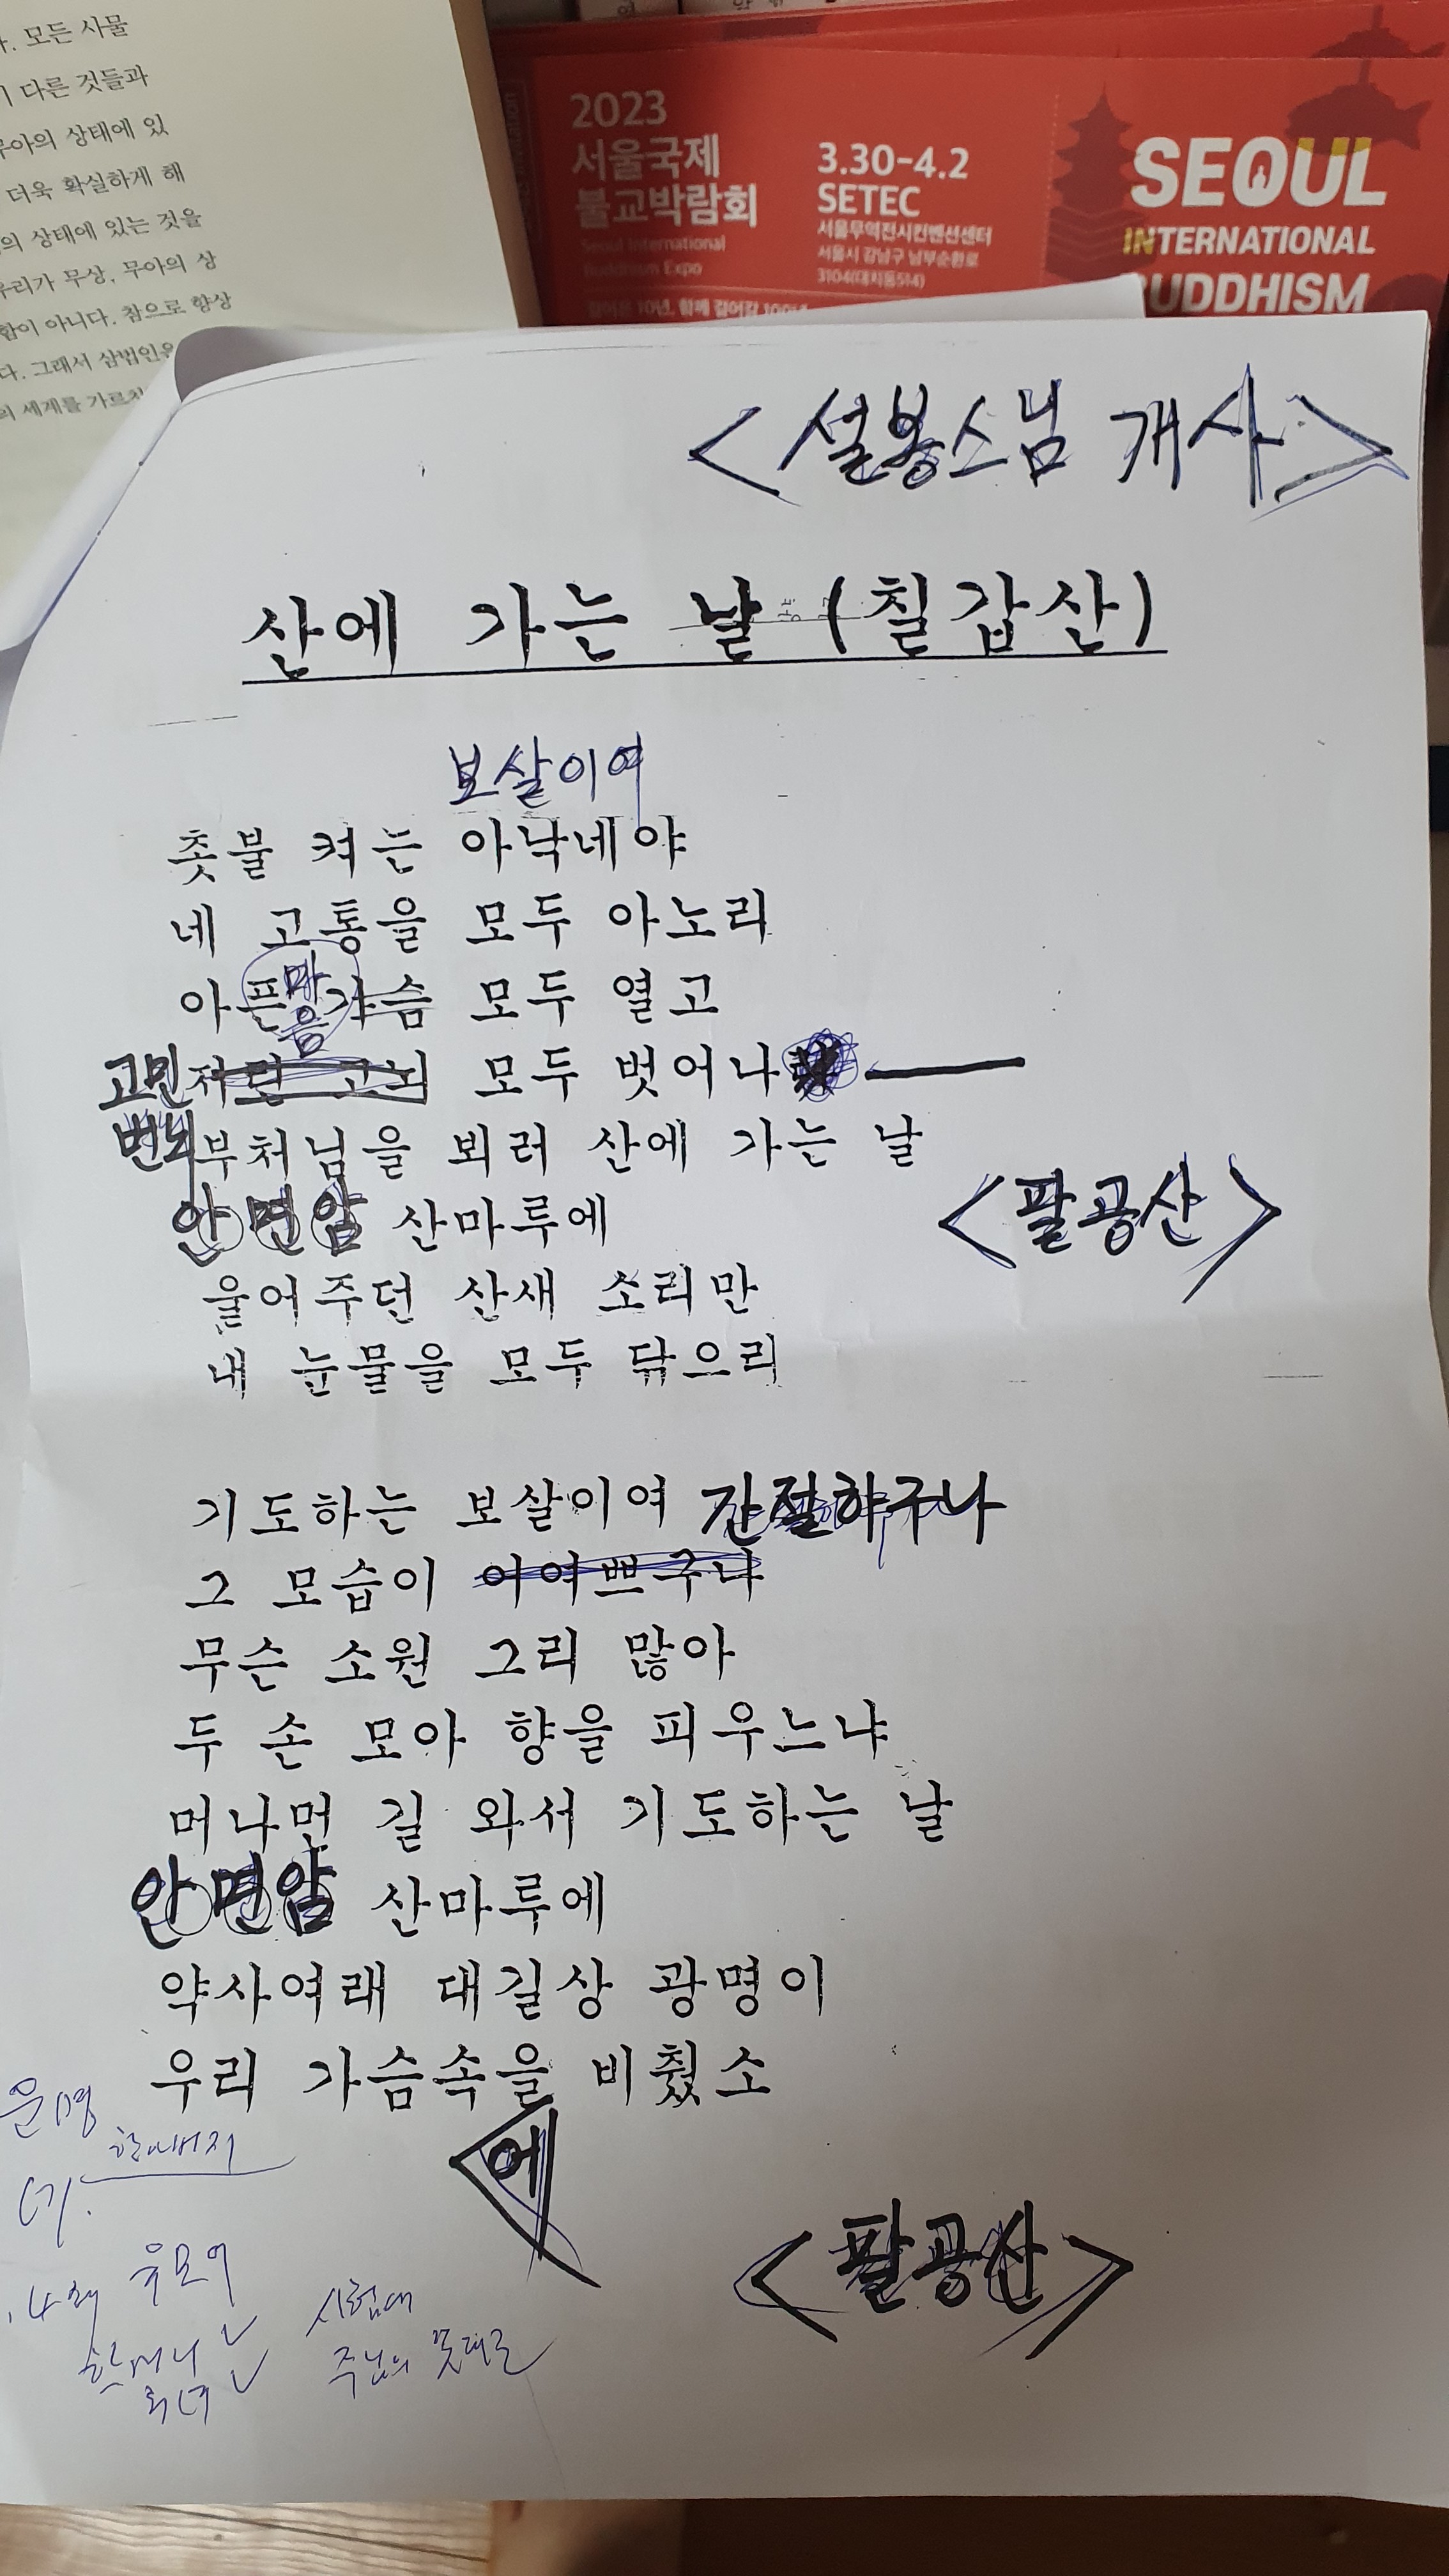 . 모든 사물
다른 것들과
무아의 상태에 있
더욱 확실하게 해
의 상태에 있는 것을
우리가 무상, 무아의 상
함이 아니다. 참으로 항상
다. 그래서 삼법인은
의 세계를 가르치
2023
서울국제
불교박람회
Seoul International
Buddhism Expo
3.30-4.2
SETEC
서울무역전시컨벤션센터
서울시 강남구 남부순환로
3104(대치동514)
걸어온 10년, 함께 걸어갈 100년
SEOUL
INTERNATIONAL
BUDDHISM
<설봉스님 개사>
산에 가는 날 (칠갑산)
보살이여
촛불 켜는 아낙네야
네 고통을 모두 아노리
마음
아픈 가슴 모두 열고
고민 저런 고뇌 모두 벗어나
번뇌 부처님을 뵈러 산에 가는 날
안면암 산마루에 <팔공산>
울어주던 산새 소리만
내 눈물을 모두 닦으리
기도하는 보살이여 간절하구나
그 모습이 어여쁘구나
무슨 소원 그리 많아
두 손 모아 향을 피우느냐
머나먼 길 와서 기도하는 날
안면암 산마루에
약사여래 대길상 광명이
우리 가슴속을 비췄소
에
<팔공산>
운명
할아버지
유모어
할머니
시험대
주님의 뜻대로